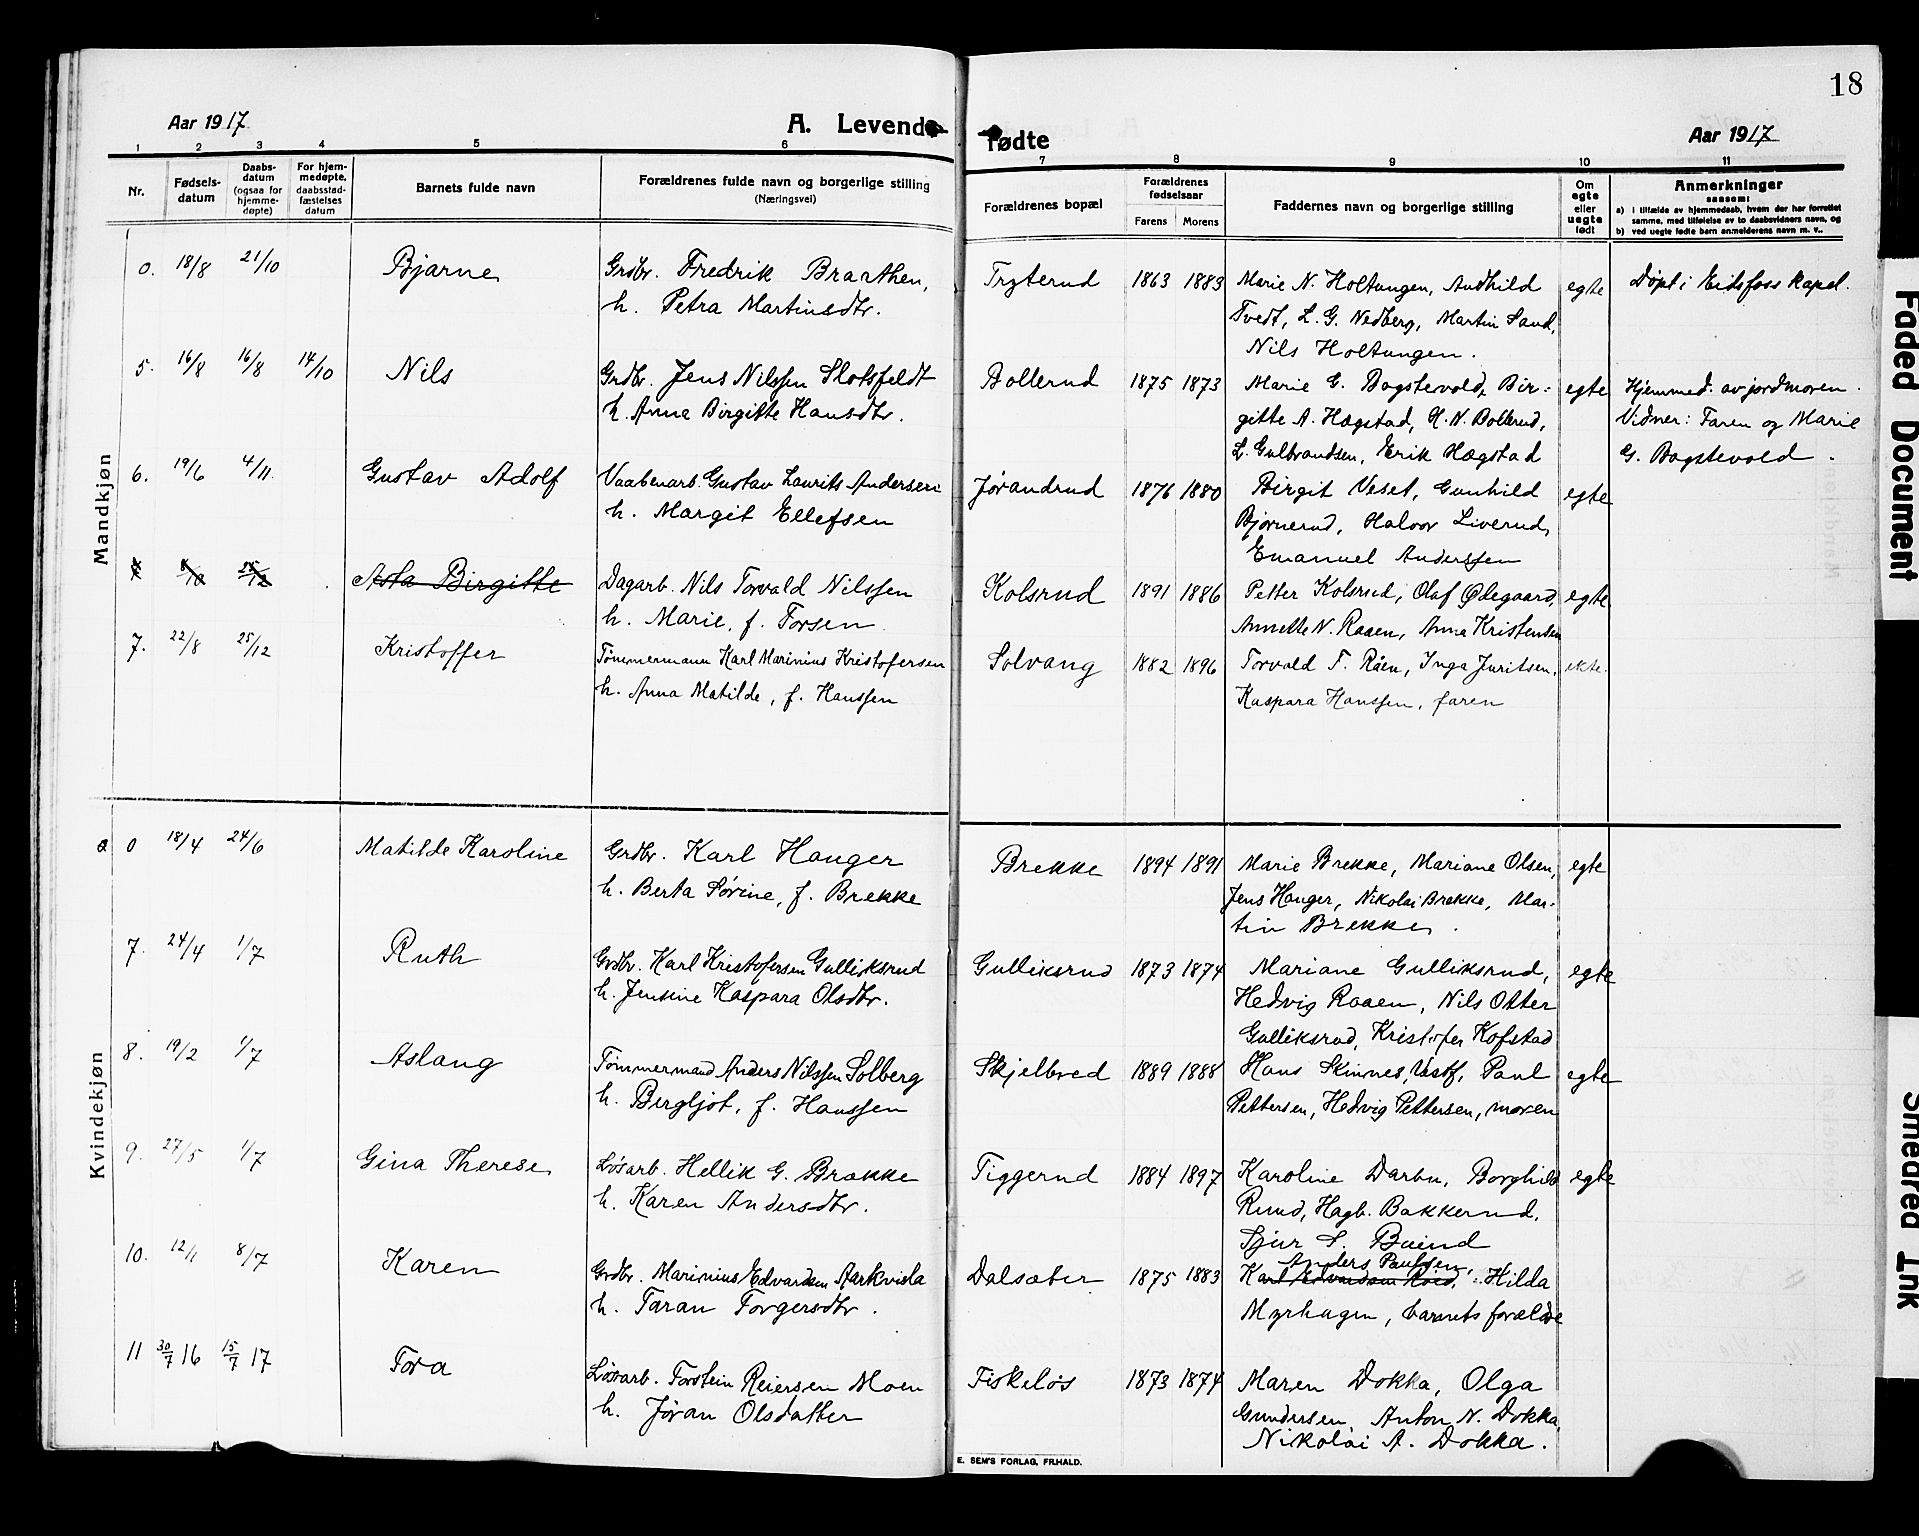 18
Aar 1917
A. Levende
fødte
Aar 1917
1 2 3 4 5 6 7 8 9 10 11
Nr.
Fødsels-
datum
Daabs-
datum
(ogsaa for
hjemme-
døpte)
For hjem-
medøpte,
daabsstad-
fæstelses
datum
Barnets fulde navn
Forældrenes fulde navn og borgerlige stilling
(Næringsvei)
Forældrenes bopæl
Forældrenes
fødselsaar
Farens Morens
Faddernes navn og borgerlige stilling
Om
egte
eller
uegte
født
Anmerkninger
saasom:
a) i tilfælde av hjemmedaab, hvem der har forrettet
samme, med tilføielse av to daabsvidners navn, og
b) ved uegte fødte barn anmelderens navn m. v..
Mandkjøn
0. 18/8 21/10 Bjarne Grdbr. Fredrik Braathen, Tryterud 1863 1883 Marie N. Holtungen, Audhild egte Døpt i Eidsfoss kapel.
h. Petra Martinsdtr. Tvedt, L. G. Nedberg, Martin Sand,
Nils Holtungen.
5. 16/8 16/8 14/10 Nils Grdbr. Jens Nilssen Slotsfeldt Bollerud 1875 1873 Marie G. Bogstevold, Bir= egte Hjemmed. av jordmoren.
h. Anna Birgitte Hansdtr. gitte A. Hægstad, H. N. Bollerud, Vidner: Faren og Marie
L. Gulbrandsen, Erik Hægstad G. Bogstevold.
6. 19/6 4/11. Gustav Adolf Vaabenarb. Gustav Laurits Andersen Jørandrud 1876 1880 Birgit Veset, Gunhild egte
h. Margit Ellefsen Bjørnerud, Halvor Liverud,
Emanuel Anderssen
Asta Birgitte Dagarb. Nils Torvald Nilssen Kolsrud 1891 1886 Petter Kolsrud, Olaf Ødegaard, egte
h. Marie, f. Torsen Annette N. Raaen, Anna Kristensen
7. 22/8 25/12 Kristoffer Tømmermann Karl Marinius Kristofersen Solvang 1882 1896 Torvald T. Råen, Inga Juritsen, ekte.
h. Anna Matilde, f. Hanssen Kaspara Hanssen, faren
Kvindekjøn
0 18/4 24/6 Matilde Karoline Grdbr. Karl Hanger Brekke 1894 1891 Marie Brekke, Mariane Olsen, egte
h. Berta Sørine, f. Brekke Jens Hanger, Nikolai Brekke, Mar-
tin Brekke.
7. 24/4 1/7 Ruth Grdbr. Karl Kristofersen Gulliksrud Gulliksrud 1873 1874 Mariane Gulliksrud, egte
h. Jensine Kaspara Olsdtr. Hedvig Raaen, Nils Otter
Gulliksrud, Kristofer Kofstad
8. 19/2 1/7 Aslaug Tømmermand Anders Nilssen Solberg Skjelbred 1889 1888 Hans Skinnes, Vestf., Paul egte
h. Bergljot, f. Hanssen Pettersen, Hedvig Pettersen, moren
9. 27/5 1/7 Gina Therese Løsarb. Hellik G. Brække Tiggerud 1884 1897 Karoline Darbu, Borghild egte
h. Karen Andersdtr. Ruud, Hagb. Bakkerud,
Sjur S. Buind
10. 12/1 8/7 Karen Grdbr. Marinius Edvardsen Aarkvisla Dalsæter 1875 1883 Anders Paulsen,
Hilda
h. Taran Torgersdtr. Myrhagen, barnets forældre
11 30/7 16 15/7 17 Tora Løsarb. Torstein Reiersen Moen Fiskeløs 1873 1874 Maren Dokka, Olga
h. Jøran Olsdatter Gundersen, Anton N. Dokka,
Nikolai A. Dokka.
E. SEM'S FORLAG, FR.HALD.
Faded Document
Smeared Ink